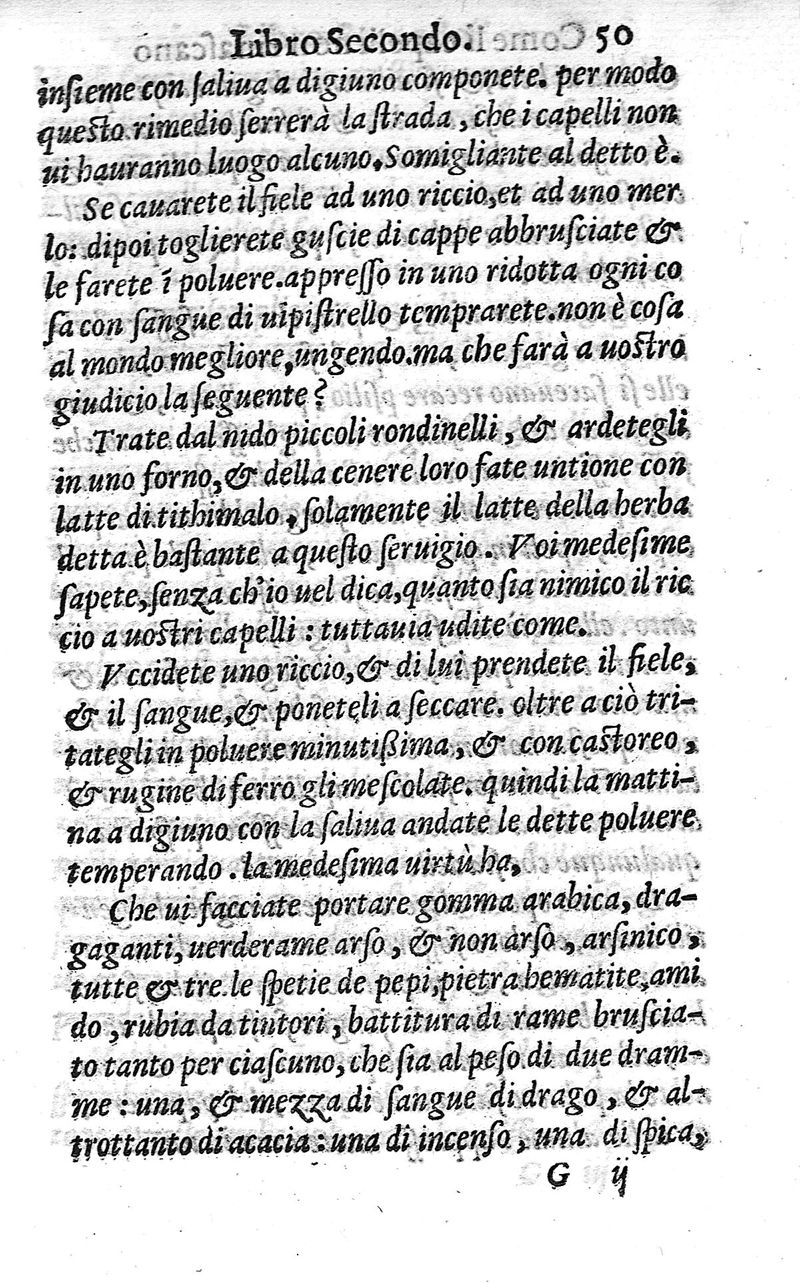 Libro Secondo. 50
inſieme con ſaliua a digiuno componete. per modo
queſto rimedio ſerrerà la ſtrada, che i capelli non
ui hauranno luogo alcuno. Somigliante al detto è.
Se cauarete il fiele ad uno riccio, et ad uno mer
lo: dipoi toglierete guſcie di cappe abbruſciate &
le farete ĩ poluere. appreſſo in uno ridotta ogni co
ſa con ſangue di uipiſtrello temprarete. non è coſa
al mondo megliore, ungendo. ma che farà a uoſtro
giudicio la ſeguente?
Trate dal nido piccoli rondinelli, & ardetegli
in uno forno, & della cenere loro fate untione con
latte di tithimalo, ſolamente il latte della herba
detta è baſtante a queſto ſeruigio. Voi medeſime
ſapete, ſenza ch'io uel dica, quanto ſia nimico il ric
cio a uoſtri capelli: tuttauia udite come.
Vccidete uno riccio, & di lui prendete il fiele,
& il ſangue, & poneteli a ſeccare. oltre a ciò tri-
tategli in poluere minutißima, & con caſtoreo,
& rugine di ferro gli meſcolate. quindi la matti-
na a digiuno con la ſaliua andate le dette poluere
temperando. la medeſima uirtù ha,
Che ui facciate portare gomma arabica, dra-
gaganti, uerderame arſo, & non arſo, arſinico,
tutte & tre le ſpetie de pepi, pietra hematite, ami
do, rubia da tintori, battitura di rame bruſcia-
to tanto per ciaſcuno, che ſia al peſo di due dram-
me: una, & mezza di ſangue di drago, & al-
trottanto di acacia: una di incenſo, una di ſpica,
G ij